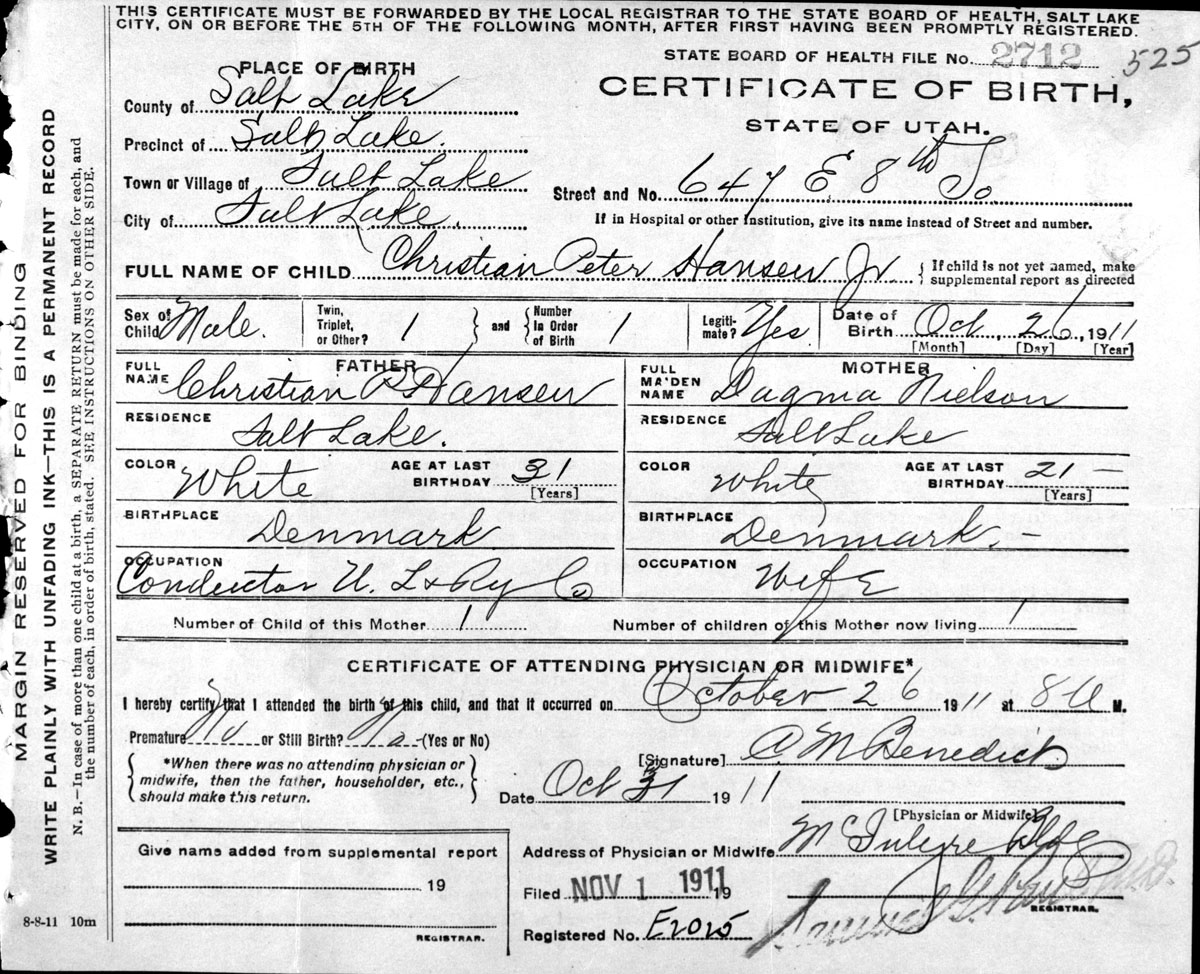 THIS CERTIFICATE MUST BE FORWARDED BY THE LOCAL REGISTRAR TO THE STATE BOARD OF HEALTH, SALT LAKE
CITY, ON OR BEFORE THE 5TH OF THE FOLLOWING MONTH, AFTER FIRST HAVING BEEN PROMPTLY REGISTERED.
STATE BOARD OF HEALTH FILE No. 2712 525
PLACE OF BIRTH
CERTIFICATE OF BIRTH,
STATE OF UTAH.
County of Salt Lake
Precinct of Salt Lake.
Town or Village of Salt Lake
Street and No. 647 E 8th So
City of Salt Lake.
If in Hospital or other Institution, give its name instead of Street and number.
FULL NAME OF CHILD Christian Peter Hansen Jr. { If child is not yet named, make supplemental report as directed
Sex of Child Male. Twin, Triplet, or Other? 1 } and { Number In Order of Birth 1 Legiti-mate? Yes. Date of Birth Oct 26, 1911
[Month] [Day] [Year]
FATHER
MOTHER
FULL NAME Christian P. Hansen
FULL MAIDEN NAME Dagma Nielson
RESIDENCE Salt Lake.
RESIDENCE Salt Lake
COLOR White AGE AT LAST BIRTHDAY 31 [Years]
COLOR White AGE AT LAST BIRTHDAY 21 — [Years]
BIRTHPLACE Denmark
BIRTHPLACE Denmark. —
OCCUPATION Conductor U. L & Ry Co
OCCUPATION Wife
Number of Child of this Mother 1
Number of children of this Mother now living 1
CERTIFICATE OF ATTENDING PHYSICIAN OR MIDWIFE*
I hereby certify that I attended the birth of this child, and that it occurred on October 26 1911 at 8 A M.
Premature No or Still Birth? No (Yes or No)
[Signature] A. M Benedict
{ *When there was no attending physician or midwife, then the father, householder, etc., should make this return. }
Date Oct 31 1911
[Physician or Midwife]
Address of Physician or Midwife McIntyre Bldg
Give name added from supplemental report
19
REGISTRAR.
Filed NOV 1 1911 19
REGISTRAR.
Registered No. E2025
8-8-11 10m
MARGIN RESERVED FOR BINDING
WRITE PLAINLY WITH UNFADING INK—THIS IS A PERMANENT RECORD
N. B.—In case of more than one child at a birth, a SEPARATE RETURN must be made for each, and
the number of each, in order of birth, stated. SEE INSTRUCTIONS ON OTHER SIDE.